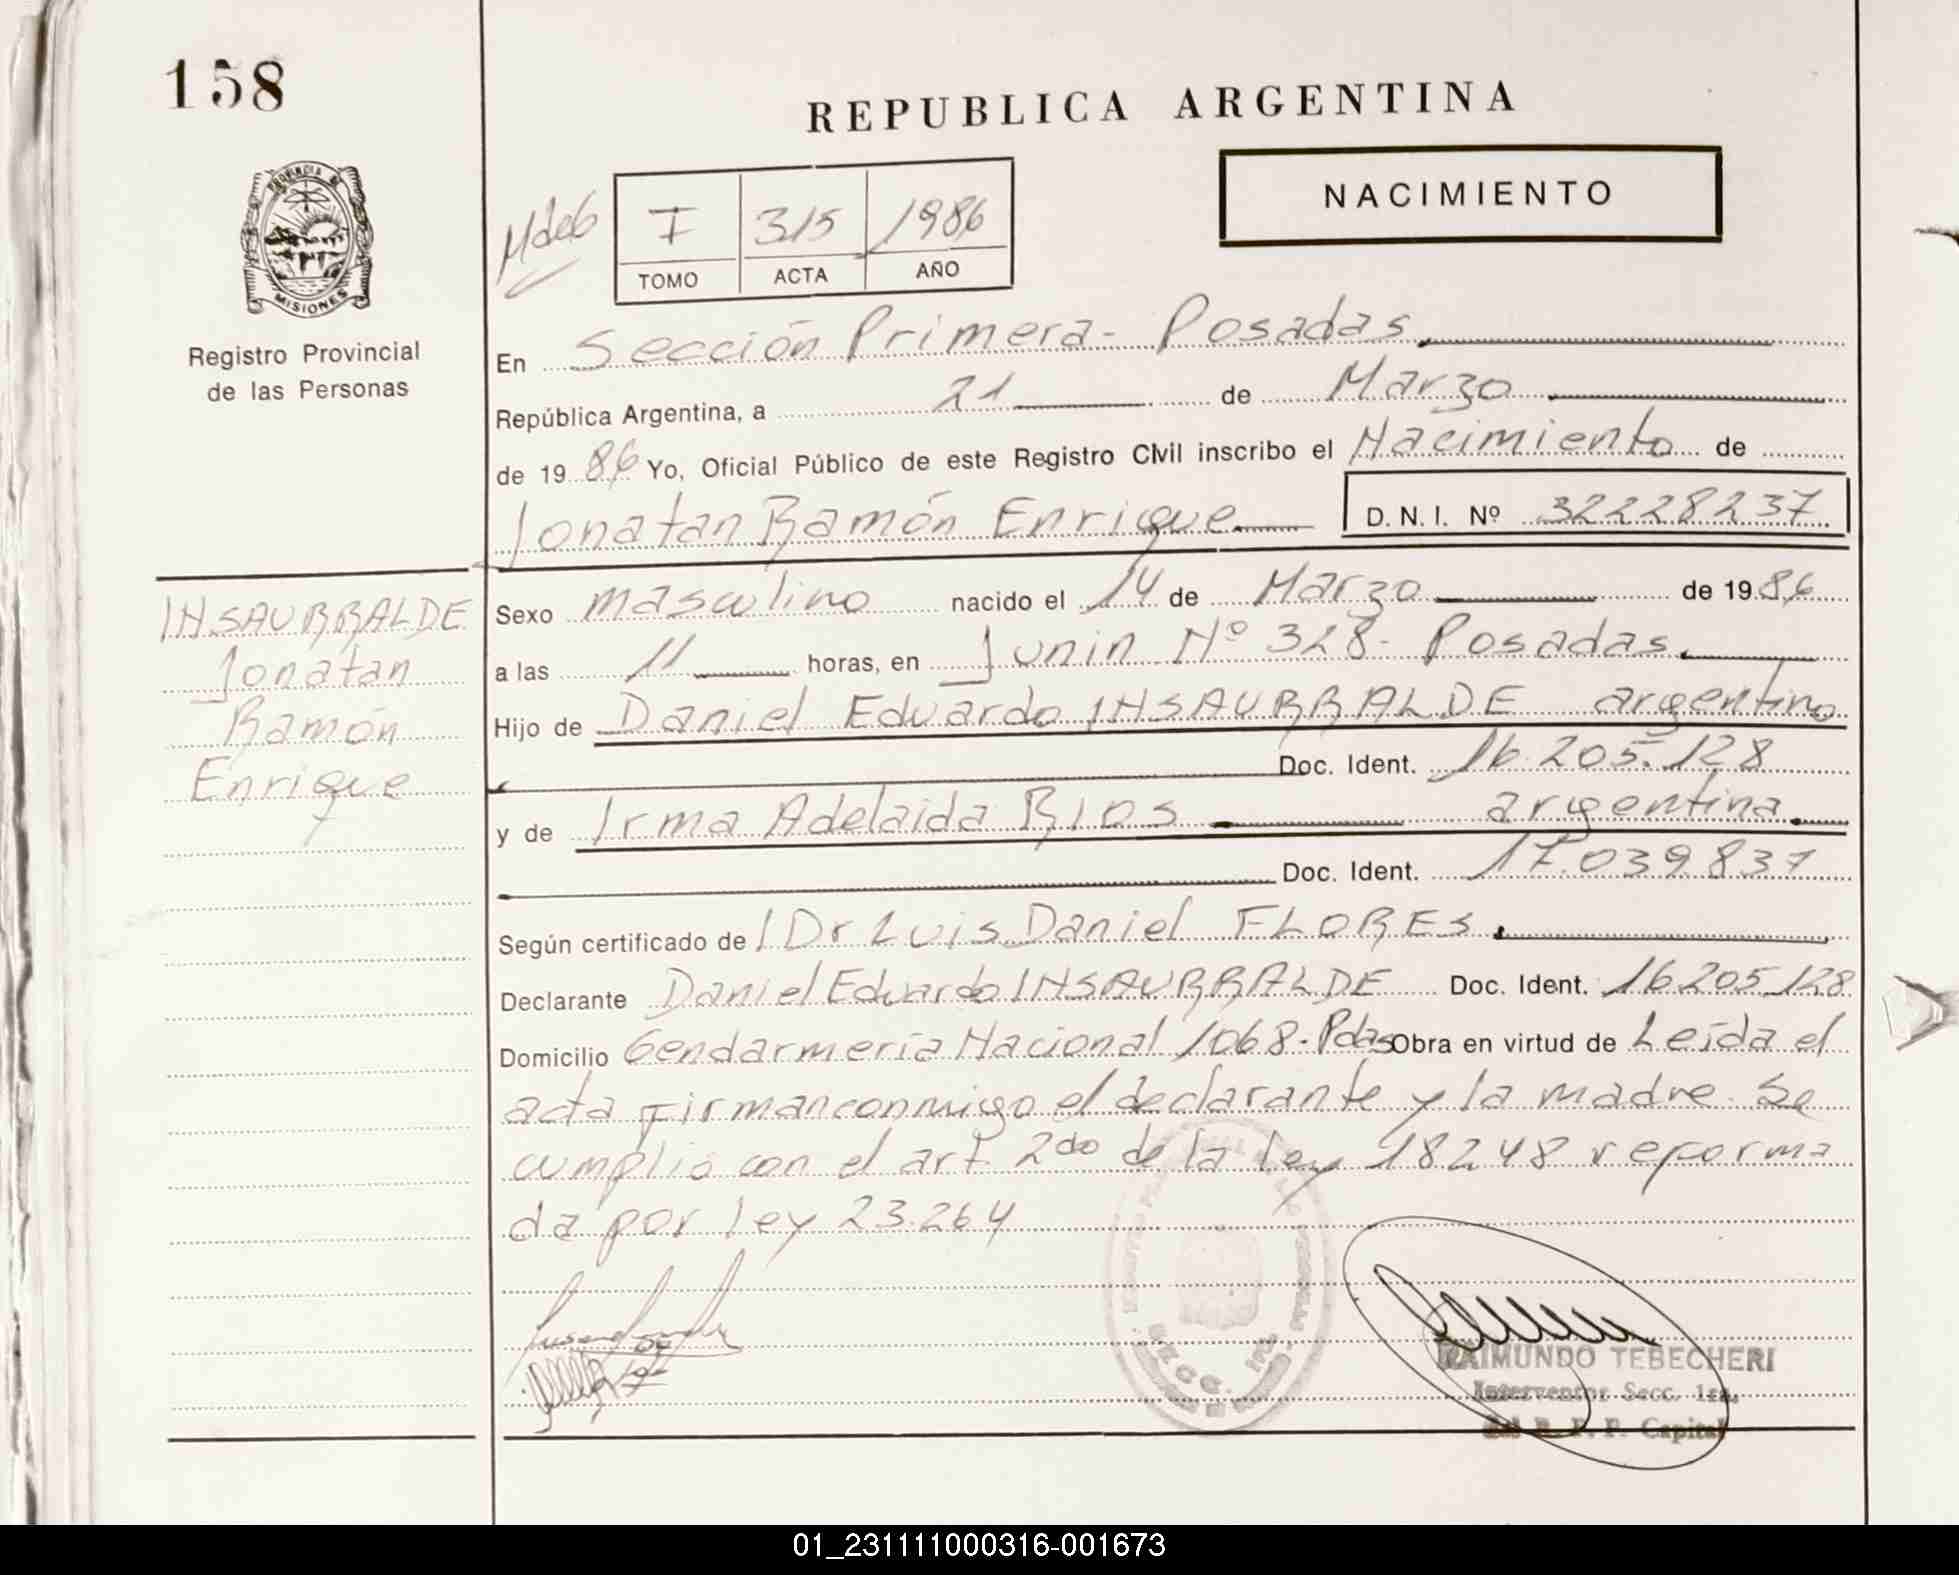 158
REPUBLICA ARGENTINA
NACIMIENTO
I 315 1986
TOMO ACTA AÑO
PROVINCIA DE
MISIONES
Registro Provincial
de las Personas
En Sección Primera - Posadas.
República Argentina, a 21 de Marzo
de 19 86 Yo, Oficial Público de este Registro Civil inscribo el Nacimiento de
Jonatan Ramón Enrique D.N.I. Nº 32228237
INSAURRALDE
Jonatan
Ramón
Enrique
Sexo masculino nacido el 14 de Marzo de 19 86
a las 11 horas, en Junin Nº 328 - Posadas.
Hijo de Daniel Eduardo INSAURRALDE argentino
Doc. Ident. 16.205.128
y de Irma Adelaida RIOS argentina.
Doc. Ident. 17.039.837
Según certificado de Dr Luis Daniel FLORES.
Declarante Daniel Eduardo INSAURRALDE Doc. Ident. 16.205.128
Domicilio Gendarmeria Nacional 1068 - Pdas Obra en virtud de Leída el
acta firman conmigo el declarante y la madre. Se
cumplio con el art. 2do de la ley 18248 reforma
da por ley 23.264
SECC. 1RA.
RAIMUNDO TEBECHERI
Interventor Secc. 1ra.
del R. P. P. Capital
01_231111000316-001673